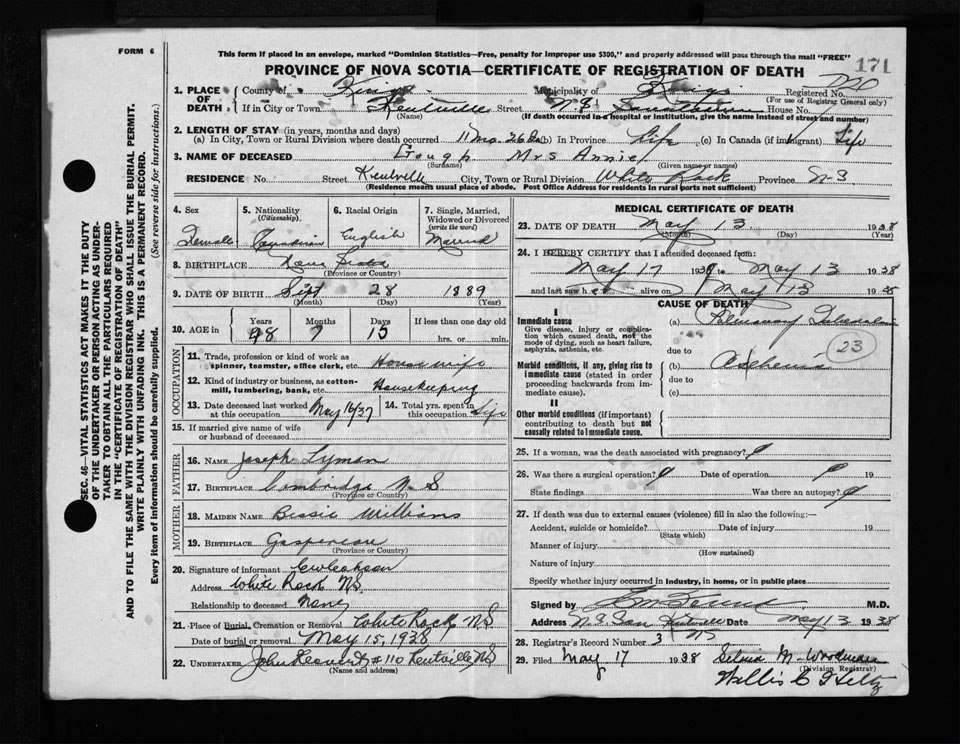 FORM 6
This form if placed in an envelope, marked "Dominion Statistics—Free, penalty for improper use $300," and properly addressed will pass through the mail "FREE"
171
PROVINCE OF NOVA SCOTIA—CERTIFICATE OF REGISTRATION OF DEATH
1. PLACE OF DEATH County of Kings Municipality of Kings Registered No.
(For use of Registrar General only)
If in City or Town Kentville Street N.S. Sanatorium House No.
(Name) (If death occurred in a hospital or institution, give the name instead of street and number)
2. LENGTH OF STAY (in years, months and days)
(a) In City, Town or Rural Division where death occurred 11 mo. 26 Da (b) In Province Life (c) In Canada (if immigrant) Life
3. NAME OF DECEASED Gough Mrs Annie
(Surname) (Given name or names)
RESIDENCE No. Street Kentville City, Town or Rural Division White Rock Province N-S
(Residence means usual place of abode. Post Office Address for residents in rural parts not sufficient)
4. Sex Female
5. Nationality (Citizenship). Canadian
6. Racial Origin English
7. Single, Married, Widowed or Divorced (write the word) Married
8. BIRTHPLACE Nova Scotia
(Province or Country)
9. DATE OF BIRTH Sept 28 1889
(Month) (Day) (Year)
10. AGE in Years Months Days If less than one day old
48 7 15 hrs. or min.
OCCUPATION
11. Trade, profession or kind of work as spinner, teamster, office clerk, etc. Housewife
12. Kind of industry or business, as cotton-mill, lumbering, bank, etc. Housekeeping
13. Date deceased last worked at this occupation May 16/37
14. Total yrs. spent in this occupation Life
15. If married give name of wife or husband of deceased
FATHER
16. NAME Joseph Lyman
17. BIRTHPLACE Cambridge N S
(Province or Country)
MOTHER
18. MAIDEN NAME Bessie Williams
19. BIRTHPLACE Gaspereau
(Province or Country)
20. Signature of informant
Address White Rock NS
Relationship to deceased None
21. Place of Burial, Cremation or Removal White Rock N.S
Date of burial or removal May 15, 1938
22. UNDERTAKER John #110 Kentville NS
(Name and address)
MEDICAL CERTIFICATE OF DEATH
23. DATE OF DEATH May 13 1938
(Month) (Day) (Year)
24. I HEREBY CERTIFY that I attended deceased from:
May 17 1937 to May 13 1938
and last saw h er alive on May 13 19
CAUSE OF DEATH
I
Immediate cause
Give disease, injury or complication which caused death, not the mode of dying, such as heart failure, asphyxia, asthenia, etc.
(a) Pulmonary
due to
23
Morbid conditions, if any, giving rise to immediate cause (stated in order proceeding backwards from immediate cause).
(b)
due to
(c)
II
Other morbid conditions (if important) contributing to death but not causally related to immediate cause.
25. If a woman, was the death associated with pregnancy?
26. Was there a surgical operation? Date of operation 19
State findings Was there an autopsy?
27. If death was due to external causes (violence) fill in also the following:—
Accident, suicide or homicide? Date of injury 19
(State which)
Manner of injury
(How sustained)
Nature of injury
Specify whether injury occurred in industry, in home, or in public place
Signed by M.D.
Address N.S San Kentville Date May 13 1938
NS
28. Registrar's Record Number 3
29. Filed May 17 1938 Selma M. Woodman
(Division Registrar)
Willis C
SEC. 46—VITAL STATISTICS ACT MAKES IT THE DUTY
OF THE UNDERTAKER OR PERSON ACTING AS UNDER-
TAKER TO OBTAIN ALL THE PARTICULARS REQUIRED
IN THE "CERTIFICATE OF REGISTRATION OF DEATH"
AND TO FILE THE SAME WITH THE DIVISION REGISTRAR WHO SHALL ISSUE THE BURIAL PERMIT.
WRITE PLAINLY WITH UNFADING INK. THIS IS A PERMANENT RECORD.
Every item of information should be carefully supplied. (See reverse side for instructions.)